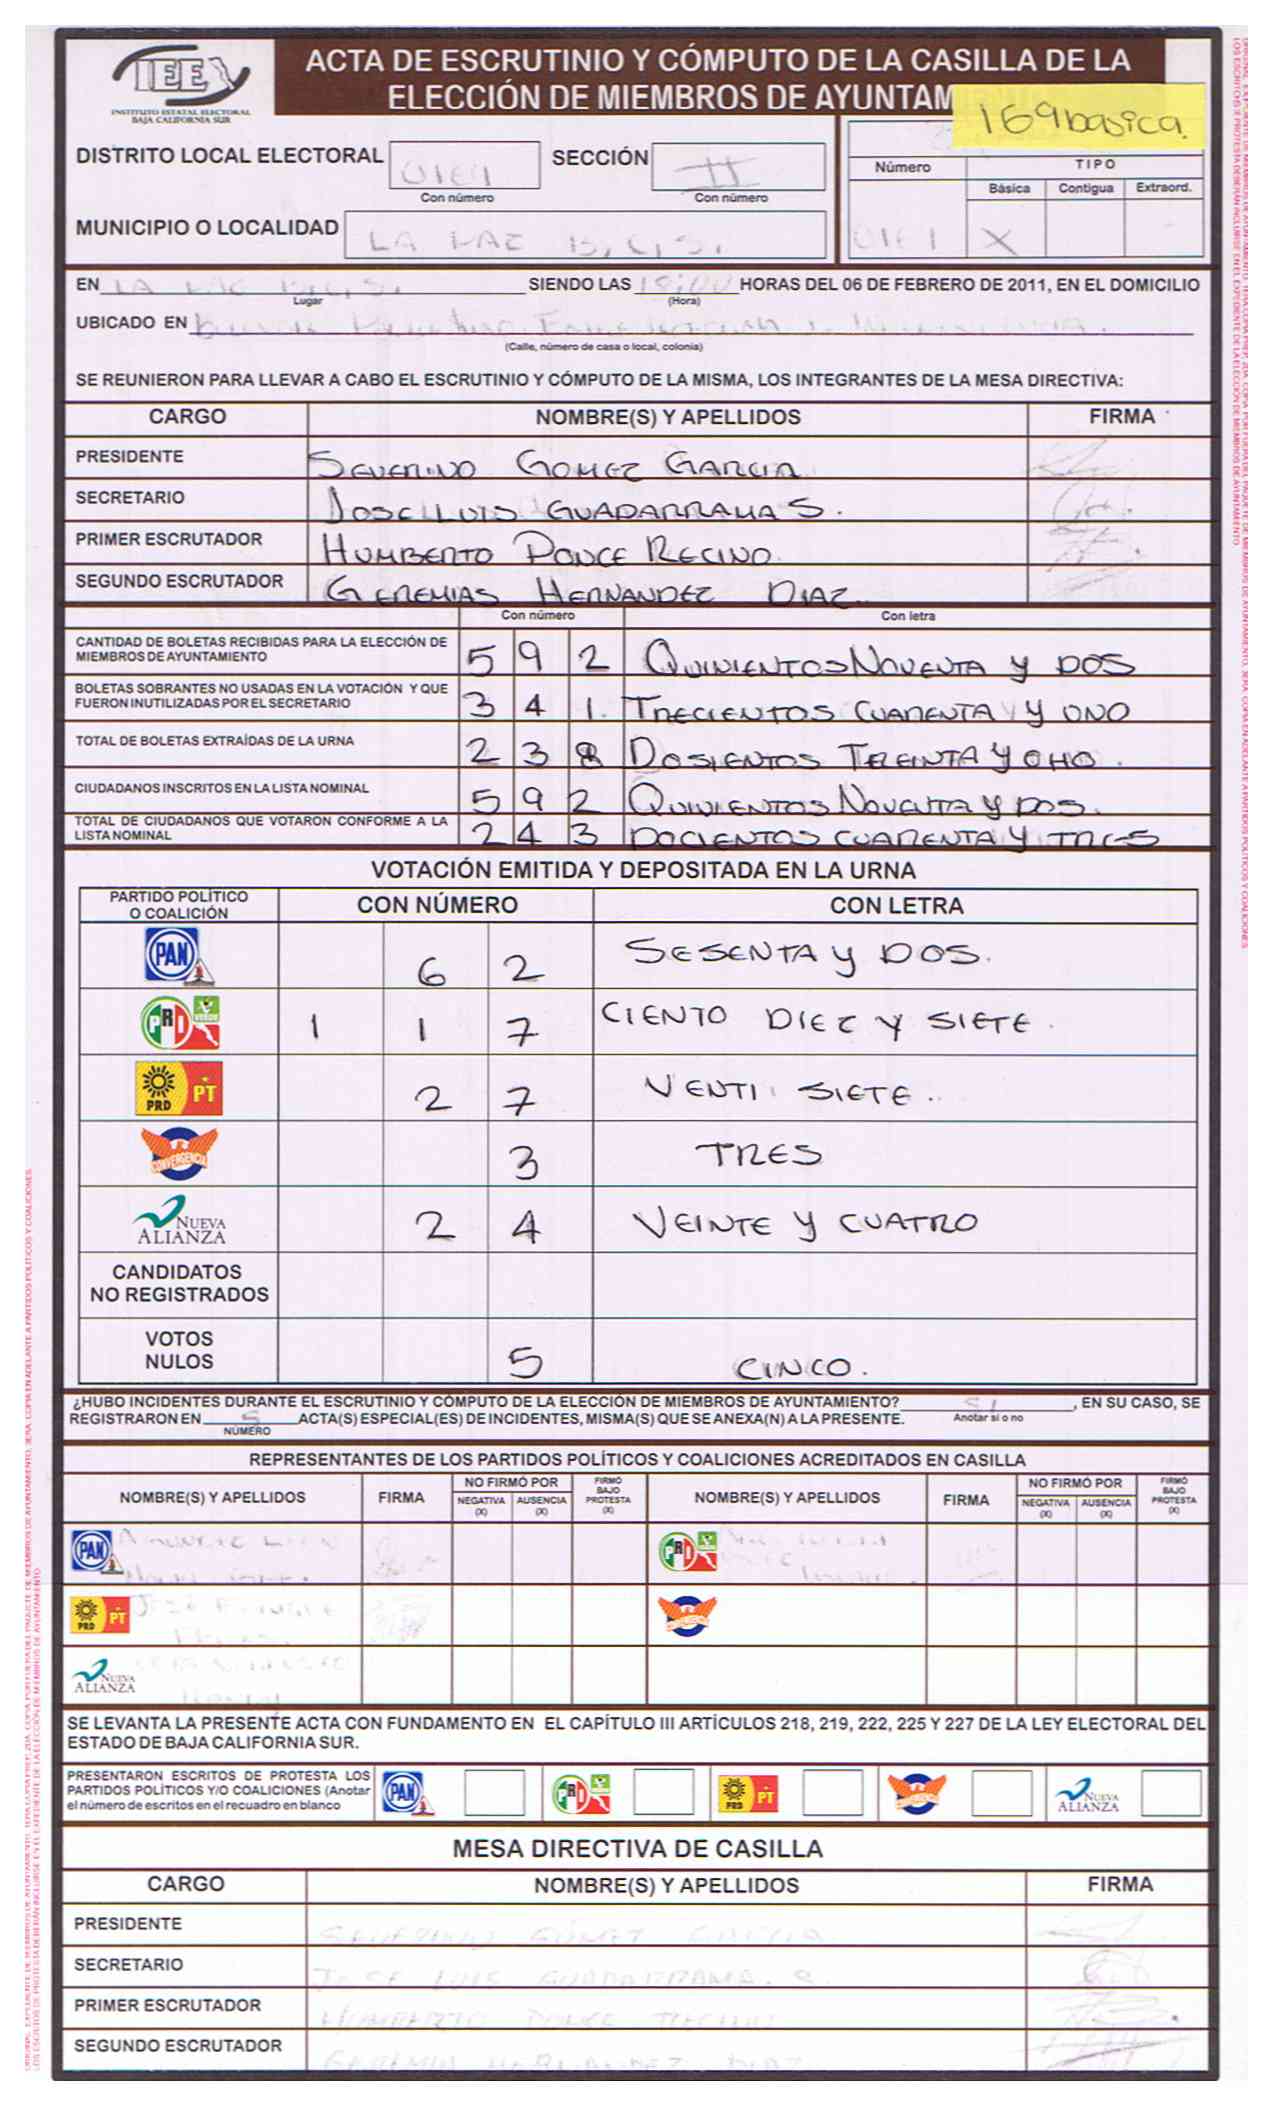 IEE
INSTITUTO ESTATAL ELECTORAL
BAJA CALIFORNIA SUR
ACTA DE ESCRUTINIO Y CÓMPUTO DE LA CASILLA DE LA
ELECCIÓN DE MIEMBROS DE AYUNTAM
169 basica.
DISTRITO LOCAL ELECTORAL
Con número
SECCIÓN II
Con número
Número TIPO
Básica Contigua Extraord.
X
MUNICIPIO O LOCALIDAD LA PAZ B.C.S.
EN LA PAZ B.C.S. SIENDO LAS 18:00 HORAS DEL 06 DE FEBRERO DE 2011, EN EL DOMICILIO
Lugar (Hora)
UBICADO EN
(Calle, número de casa o local, colonia)
SE REUNIERON PARA LLEVAR A CABO EL ESCRUTINIO Y CÓMPUTO DE LA MISMA, LOS INTEGRANTES DE LA MESA DIRECTIVA:
CARGO NOMBRE(S) Y APELLIDOS FIRMA
PRESIDENTE SEVERINO GOMEZ GARCIA
SECRETARIO JOSE LUIS GUADARRAMA S.
PRIMER ESCRUTADOR HUMBERTO PONCE RECINO.
SEGUNDO ESCRUTADOR GEREMIAS HERNANDEZ DIAZ.
Con número Con letra
CANTIDAD DE BOLETAS RECIBIDAS PARA LA ELECCIÓN DE
MIEMBROS DE AYUNTAMIENTO 5 9 2 QUINIENTOS NOVENTA Y DOS
BOLETAS SOBRANTES NO USADAS EN LA VOTACIÓN Y QUE
FUERON INUTILIZADAS POR EL SECRETARIO 3 4 1. TRECIENTOS CUARENTA Y UNO
TOTAL DE BOLETAS EXTRAÍDAS DE LA URNA 2 3 8 DOSIENTOS TREINTA Y OHO.
CIUDADANOS INSCRITOS EN LA LISTA NOMINAL 5 9 2 QUINIENTOS NOVENTA Y DOS.
TOTAL DE CIUDADANOS QUE VOTARON CONFORME A LA
LISTA NOMINAL 2 4 3 DOCIENTOS CUARENTA Y TRES
VOTACIÓN EMITIDA Y DEPOSITADA EN LA URNA
PARTIDO POLÍTICO
O COALICIÓN CON NÚMERO CON LETRA
PAN 6 2 SESENTA Y DOS.
PRI VERDE 1 1 7 CIENTO DIEZ Y SIETE.
PRD PT 2 7 VENTI SIETE.
CONVERGENCIA 3 TRES
NUEVA ALIANZA 2 4 VEINTE Y CUATRO
CANDIDATOS
NO REGISTRADOS
VOTOS
NULOS 5 CINCO.
¿HUBO INCIDENTES DURANTE EL ESCRUTINIO Y CÓMPUTO DE LA ELECCIÓN DE MIEMBROS DE AYUNTAMIENTO? SI, EN SU CASO, SE
REGISTRARON EN 5 ACTA(S) ESPECIAL(ES) DE INCIDENTES, MISMA(S) QUE SE ANEXA(N) A LA PRESENTE. Anotar si o no
NÚMERO
REPRESENTANTES DE LOS PARTIDOS POLÍTICOS Y COALICIONES ACREDITADOS EN CASILLA
NOMBRE(S) Y APELLIDOS FIRMA NO FIRMÓ POR NEGATIVA (X) AUSENCIA (X) FIRMÓ BAJO PROTESTA (X) NOMBRE(S) Y APELLIDOS FIRMA NO FIRMÓ POR NEGATIVA (X) AUSENCIA (X) FIRMÓ BAJO PROTESTA (X)
PAN PRI VERDE
PRD PT JOSÉ CONVERGENCIA
NUEVA ALIANZA
SE LEVANTA LA PRESENTE ACTA CON FUNDAMENTO EN EL CAPÍTULO III ARTÍCULOS 218, 219, 222, 225 Y 227 DE LA LEY ELECTORAL DEL
ESTADO DE BAJA CALIFORNIA SUR.
PRESENTARON ESCRITOS DE PROTESTA LOS
PARTIDOS POLÍTICOS Y/O COALICIONES (Anotar
el número de escritos en el recuadro en blanco
PAN PRI VERDE PRD PT CONVERGENCIA NUEVA ALIANZA
MESA DIRECTIVA DE CASILLA
CARGO NOMBRE(S) Y APELLIDOS FIRMA
PRESIDENTE SEVERINO GÓMEZ GARCIA
SECRETARIO JOSE LUIS GUADARRAMA. S.
PRIMER ESCRUTADOR HUMBERTO PONCE RECINO
SEGUNDO ESCRUTADOR HERNANDEZ DIAZ